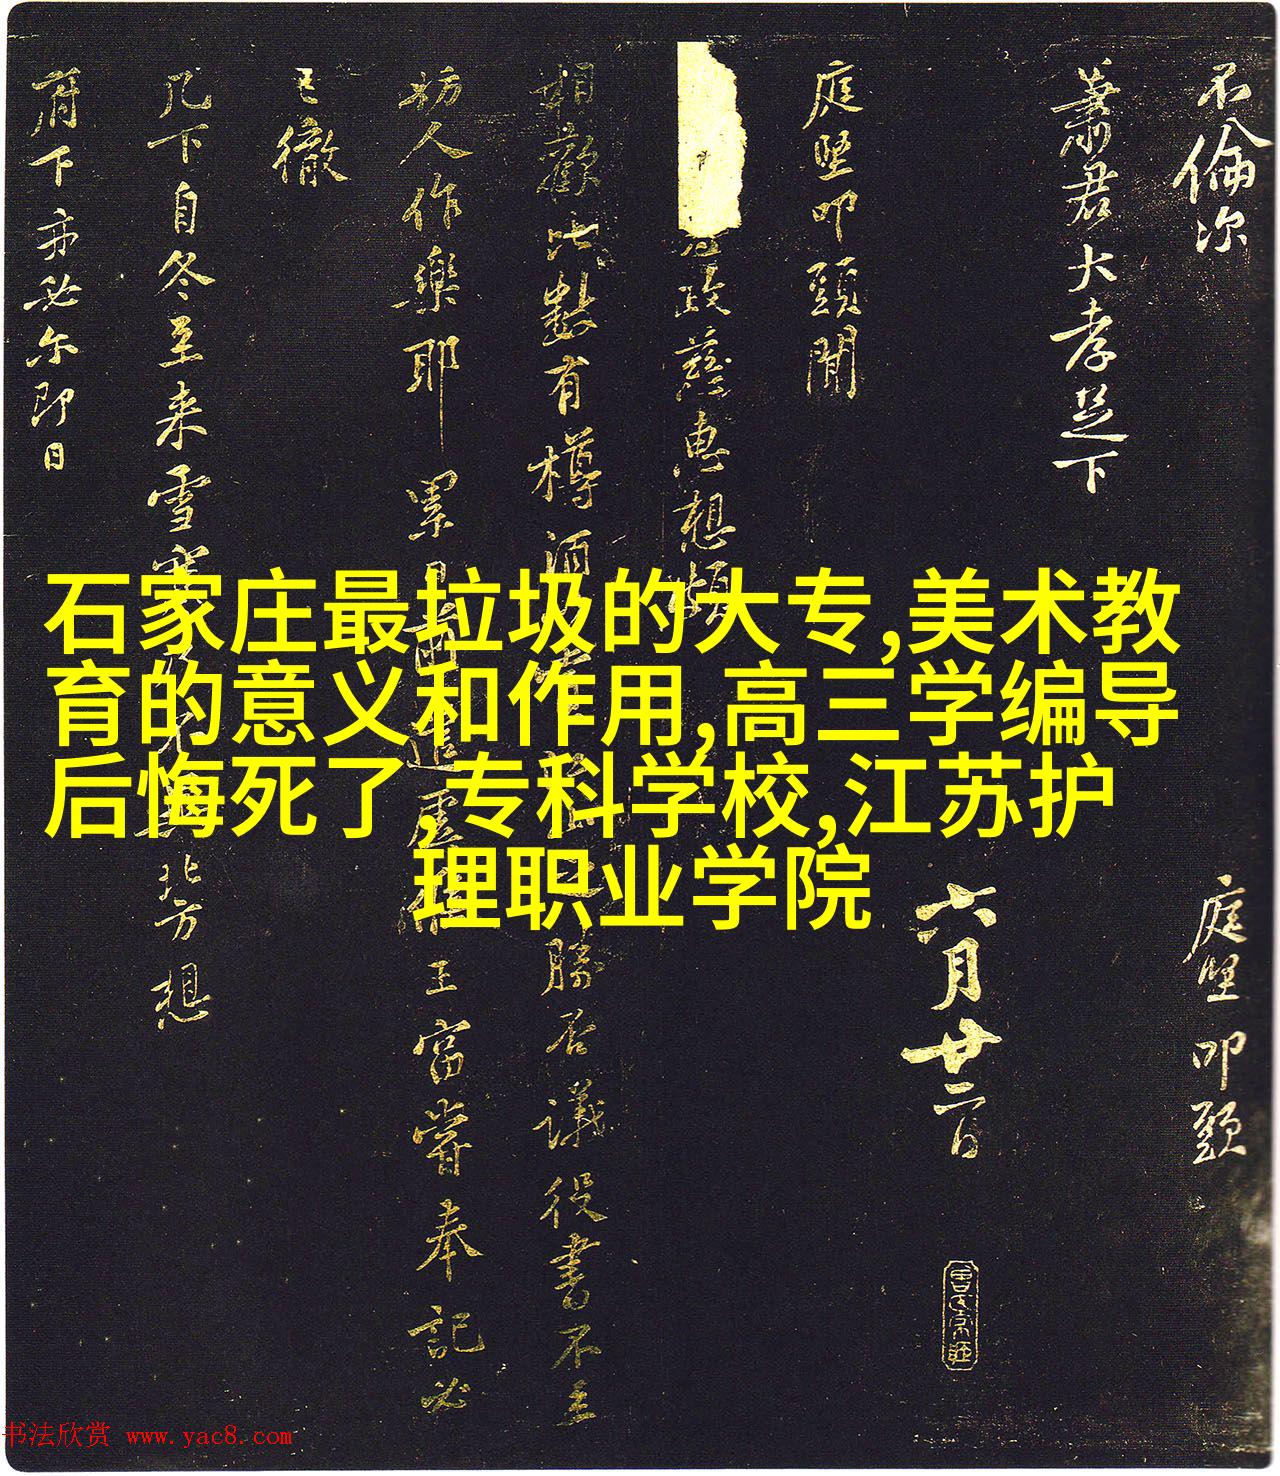 不倫次
庭堅叩頭
蕭君大孝足下
六月廿二日
庭堅叩頭聞
政慈惠想
相歡比數有樽酒
勝否議役書不主
妨人作樂耶累
王富嘗奉記必
已徹
几下自冬至来雪寒
北方想
府下亦必尔即日
石家庄最垃圾的大专,美术教
育的意义和作用,高三学编导
后悔死了,专科学校,江苏护
理职业学院
书法欣赏 www.yac8.com